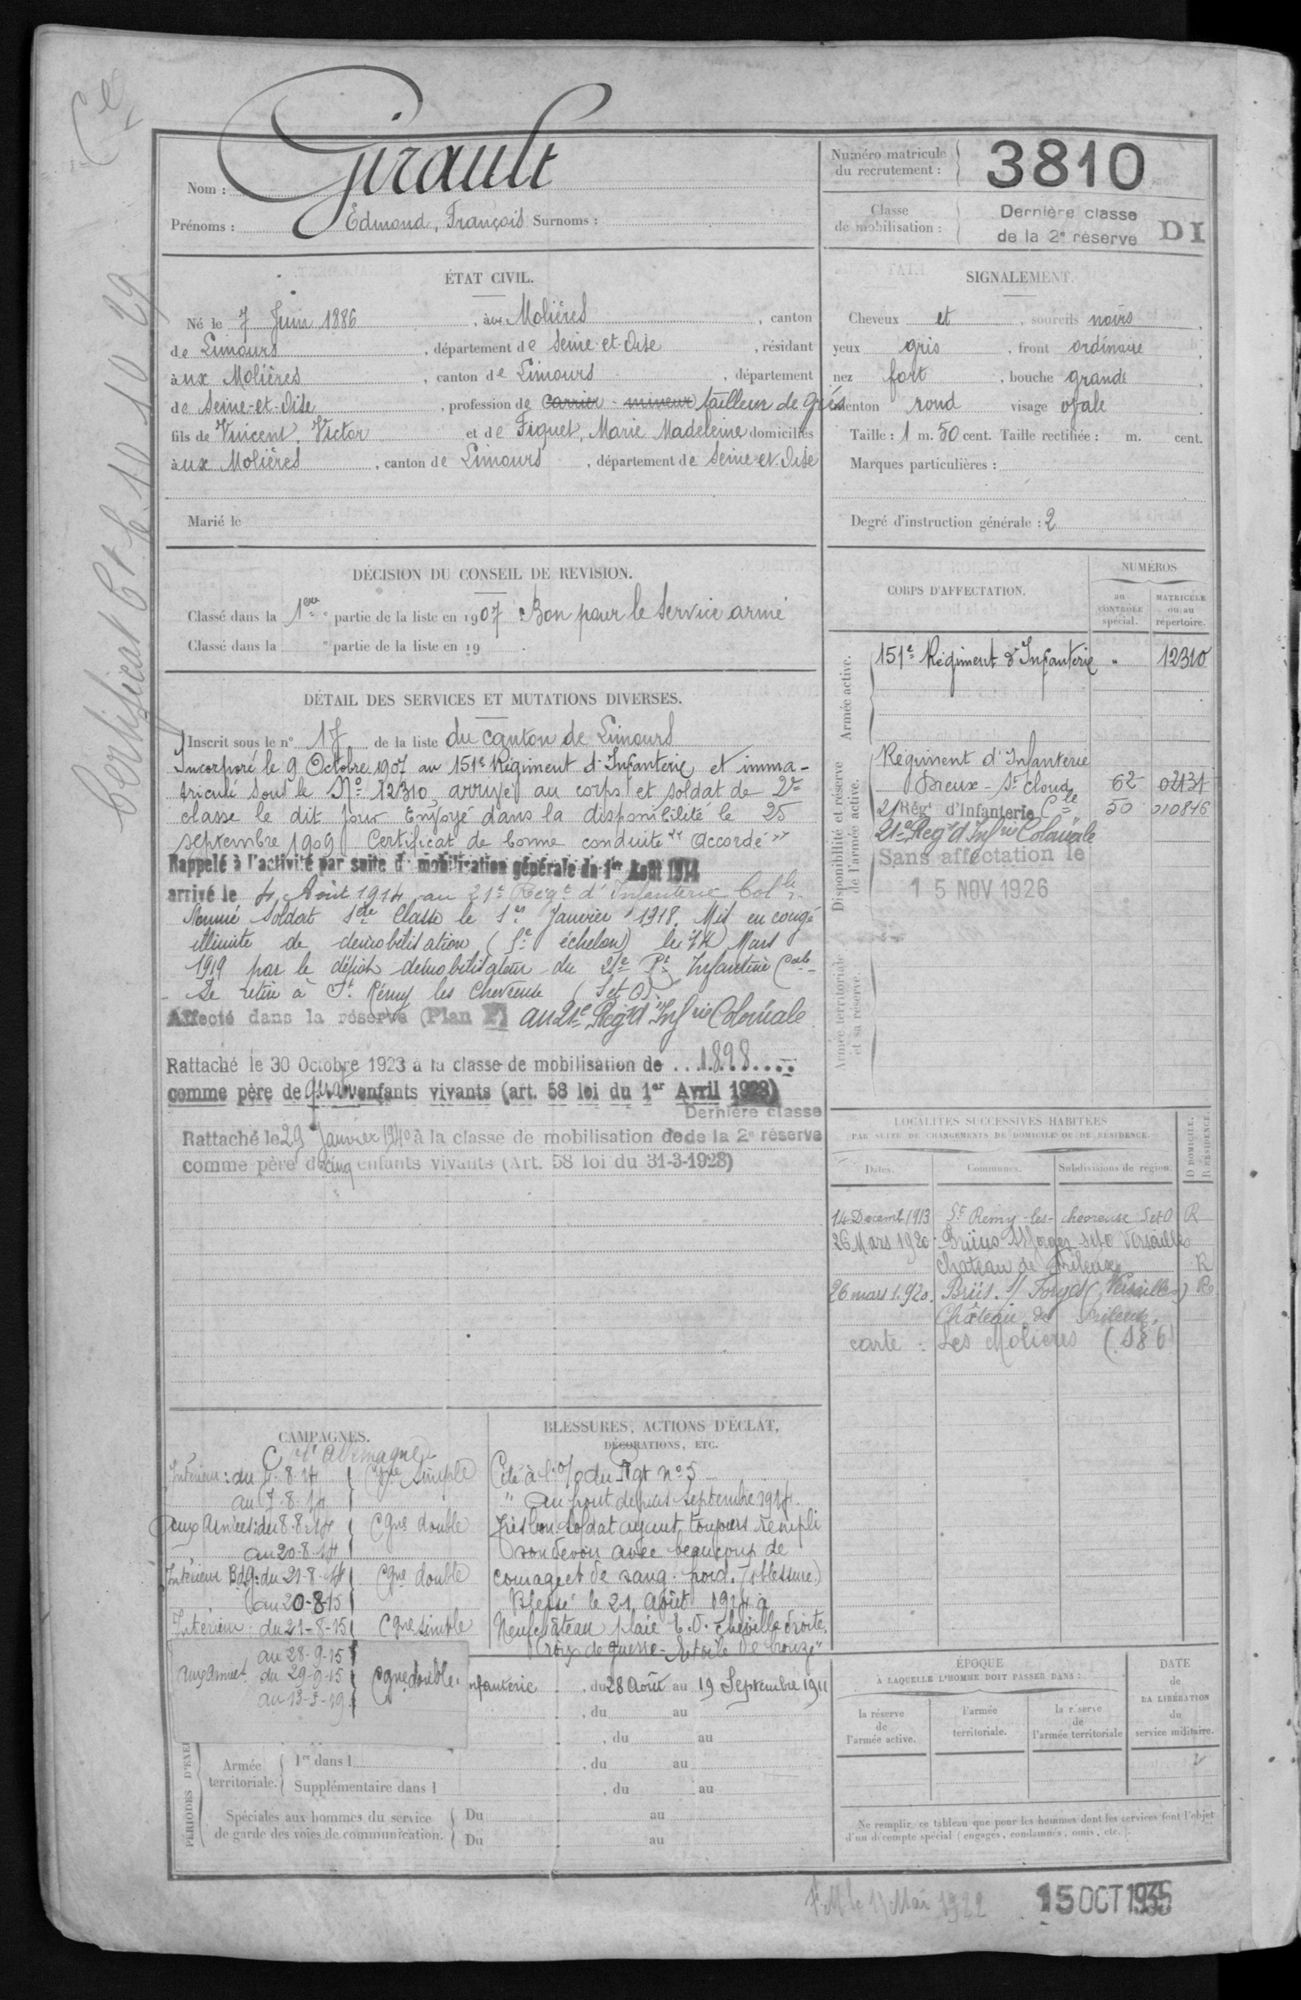 Nom : Girault
Prénoms : Edmond, François Surnoms :
Numéro matricule
du recrutement : 3810
Classe
de mobilisation :
Dernière classe
de la 2e réserve
DI
ÉTAT CIVIL.
Né le 7 Juin 1886, aux Molières, canton
de Limours, département de Seine-et-Oise, résidant
aux Molières, canton de Limours, département
de Seine-et-Oise, profession de carrier mineur tailleur de grès
fils de Vincent, Victor et de Figuet, Marie Madeleine domiciliés
aux Molières, canton de Limours, département de Seine-et-Oise
Marié le
SIGNALEMENT.
Cheveux et, sourcils noirs
yeux gris, front ordinaire
nez fort, bouche grande
menton rond visage ovale
Taille : 1 m. 50 cent. Taille rectifiée : m. cent.
Marques particulières :
Degré d'instruction générale : 2
DÉCISION DU CONSEIL DE REVISION.
Classé dans la 1ère partie de la liste en 1907 Bon pour le service armé
Classé dans la e partie de la liste en 19 .
DÉTAIL DES SERVICES ET MUTATIONS DIVERSES.
Inscrit sous le n° 17 de la liste du canton de Limours
Incorporé le 9 Octobre 1907 au 151e Régiment d'Infanterie et imma-
triculé sous le No 12310, arrivé au corps et soldat de 2e
classe le dit jour Envoyé dans la disponibilité le 25
septembre 1909 Certificat de bonne conduite "Accordé"
Rappelé à l'activité par suite d mobilisation générale du 1er Août 1914
arrivé le 4 Août 1914 au 21e Régt d'Infanterie Colle
Nommé soldat 1ère Classe le 1er Janvier 1918. Mis en congé
illimité de démobilisation ( échelon) le 14 Mars
1919 par le dépôt démobilisateur du 21e Rt Infanterie Cale
Se retire à St Rémy les Chevreuse (S et O)
Affecté dans la réserve (Plan P) au 21e Régt d'Infrie Coloniale
Rattaché le 30 Octobre 1923 à la classe de mobilisation de ...1898....
comme père de quatre enfants vivants (art. 58 loi du 1er Avril 1923)
Dernière classe
Rattaché le 29 Janvier 1940 à la classe de mobilisation de de la 2e réserve
comme père de cinq enfants vivants (Art. 58 loi du 31-3-1928)
CORPS D'AFFECTATION.
NUMÉROS
au
CONTROLE
spécial.
MATRICULE
ou au
répertoire.
Armée active.
151e Régiment d'Infanterie " 12310
Disponibilité et réserve
de l'armée active.
Régiment d'Infanterie
Dreux - St Cloud 62 02131
21 Régt d'Infanterie Cle 50 010846
21e Régt d'Infrie Coloniale
Sans affectation le
15 NOV 1926
Armée territoriale
et sa réserve.
LOCALITÉS SUCCESSIVES HABITÉES
PAR SUITE DE CHANGEMENTS DE DOMICILE OU DE RÉSIDENCE.
Dates. Communes. Subdivisions de région. D DOMICILE. R RÉSIDENCE.
14 Décemb 1913 St Remy-les-chevreuse S et O R
26 Mars 1920 S et O Versailles
Chateau de R
26 mars 1920. Briis s/ Forges (Versailles) R
Château de
carte : Les Molières (S & O)
CAMPAGNES.
C. Allemagne
Intérieur : du 4-8-14 Cgne simple
au 7-8-14
aux Armées : du 8-8-14 Cgne double
au 20-8-14
Intérieur Bdg : du 21-8-14 Cgne double
au 20-8-15
Intérieur : du 21-8-15 Cgne simple
au 28-9-15
aux Armées du 29-9-15 Cgne double
au 13-3-19
BLESSURES, ACTIONS D'ÉCLAT,
DÉCORATIONS, ETC.
Cité à l'O/ du Rgt no 5
" Au front depuis septembre 1914.
Très bon soldat ayant toujours rempli
son devoir avec beaucoup de
courage et de sang-froid. (1 blessure)
Blessé le 21 Août 1914 à
Neufchâteau plaie cheville droite.
Croix de guerre - Etoile de bronze"
nfanterie, du 28 Août au 19 Septembre 1911
, du au
, du au
PÉRIODES D'EXE
Armée
territoriale.
1re dans l , du au
Supplémentaire dans l , du au
Spéciales aux hommes du service
de garde des voies de communication.
Du au
Du au
ÉPOQUE
À LAQUELLE L'HOMME DOIT PASSER DANS :
la réserve
de
l'armée active.
l'armée
territoriale.
la réserve
de
l'armée territoriale
DATE
de
LA LIBÉRATION
du
service militaire.
Ne remplir ce tableau que pour les hommes dont les services font l'objet
d'un décompte spécial (engagés, condamnés, omis, etc.).
Mai 1922
15 OCT 1935